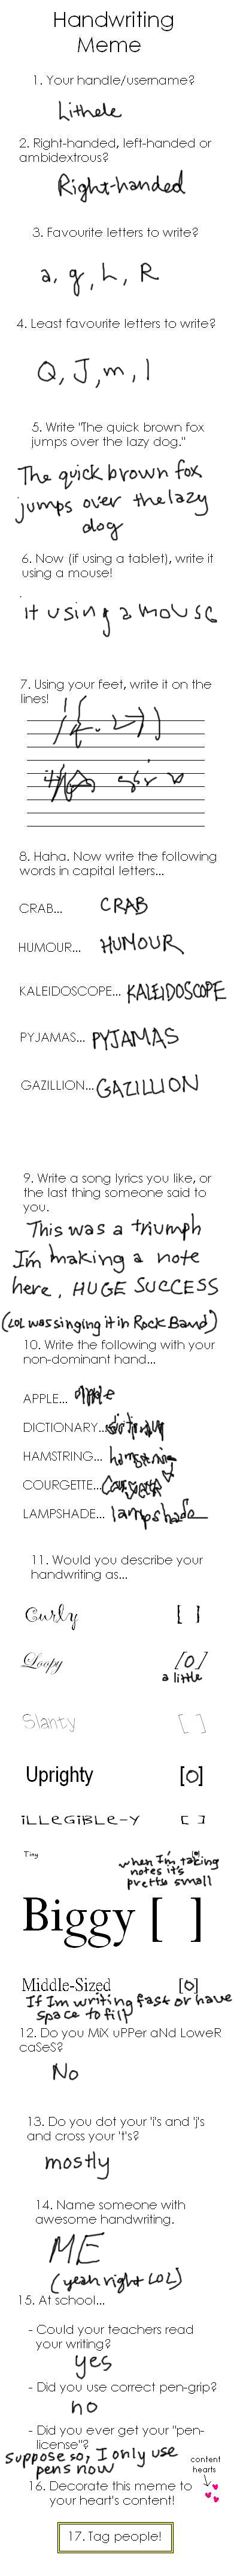 Handwriting
Meme
1. Your handle/username?
Lithele
2. Right-handed, left-handed or
ambidextrous?
Right-handed
3. Favourite letters to write?
a, g, h, R
4. Least favourite letters to write?
Q, J, m, l
5. Write "The quick brown fox
jumps over the lazy dog."
The quick brown fox
jumps over the lazy
dog
6. Now (if using a tablet), write it
using a mouse!
it using a mouse
7. Using your feet, write it on the
lines!
8. Haha. Now write the following
words in capital letters...
CRAB... CRAB
HUMOUR... HUMOUR
KALEIDOSCOPE... KALEIDOSCOPE
PYJAMAS... PYJAMAS
GAZILLION... GAZILLION
9. Write a song lyrics you like, or
the last thing someone said to
you.
This was a triumph
I'm making a note
here, HUGE SUCCESS
(LOL was singing it in Rock Band)
10. Write the following with your
non-dominant hand...
APPLE... apple
DICTIONARY... dictionary
HAMSTRING... hamstring
COURGETTE... courgette
LAMPSHADE... lampshade
11. Would you describe your
handwriting as...
Curly [ ]
Loopy [O]
a little
Slanty [ ]
Uprighty [O]
iLLeGiBLe-Y [ ]
Tiny
when I'm taking
notes it's
pretty small
Biggy [ ]
Middle-Sized [O]
If Im writing fast or have
space to fill
12. Do you MiX uPPer aNd LoweR
caSeS?
No
13. Do you dot your 'i's and 'j's
and cross your 't's?
mostly
14. Name someone with
awesome handwriting.
ME
(yeah right LOL)
15. At school...
- Could your teachers read
your writing?
yes
- Did you use correct pen-grip?
no
- Did you ever get your "pen-
license"?
suppose so, I only use
pens now
content
hearts
16. Decorate this meme to
your heart's content!
17. Tag people!